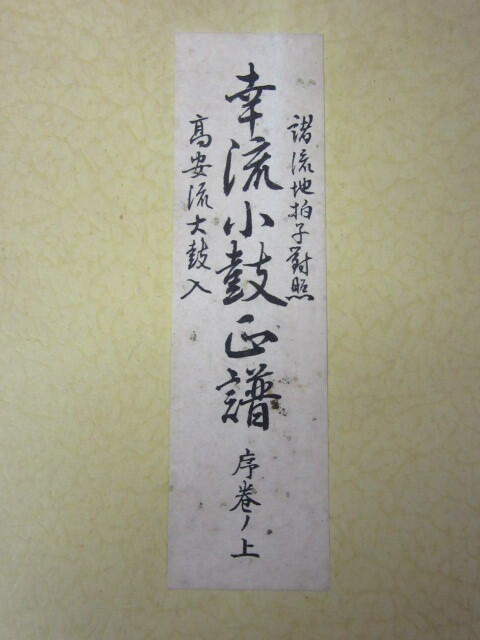 諸流地拍子對照
幸流小鼓正譜 序巻ノ上
高安流大鼓入